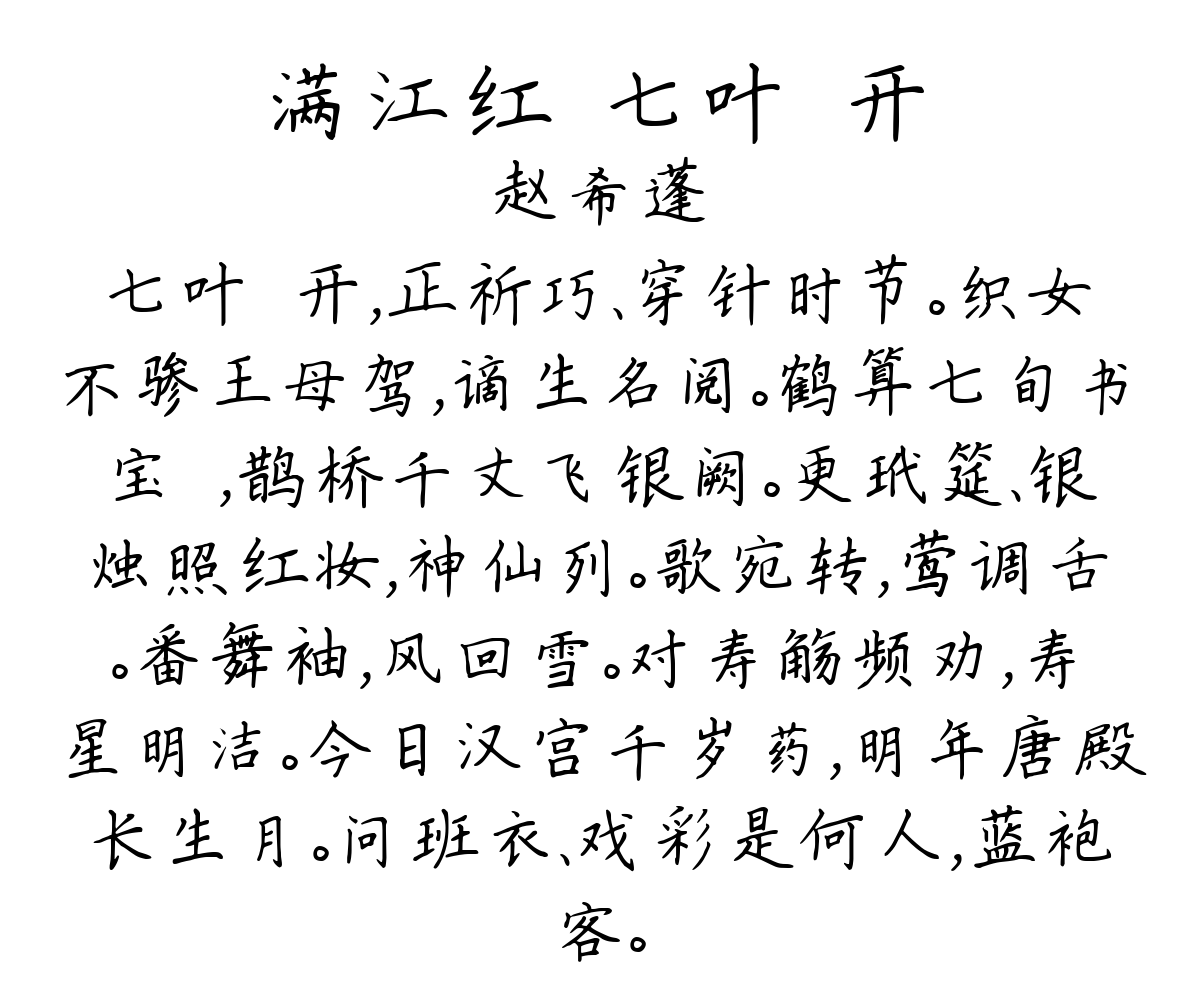 满江红 七叶 开
赵希蓬
七叶 开,正祈巧、穿针时节。织女
不骖王母驾,谪生名阅。鹤算七旬书
宝 ,鹊桥千丈飞银阙。更玳筵、银
烛照红妆,神仙列。歌宛转,莺调舌
。番舞袖,风回雪。对寿觞频劝,寿
星明洁。今日汉宫千岁药,明年唐殿
长生月。问班衣、戏彩是何人,蓝袍
客。